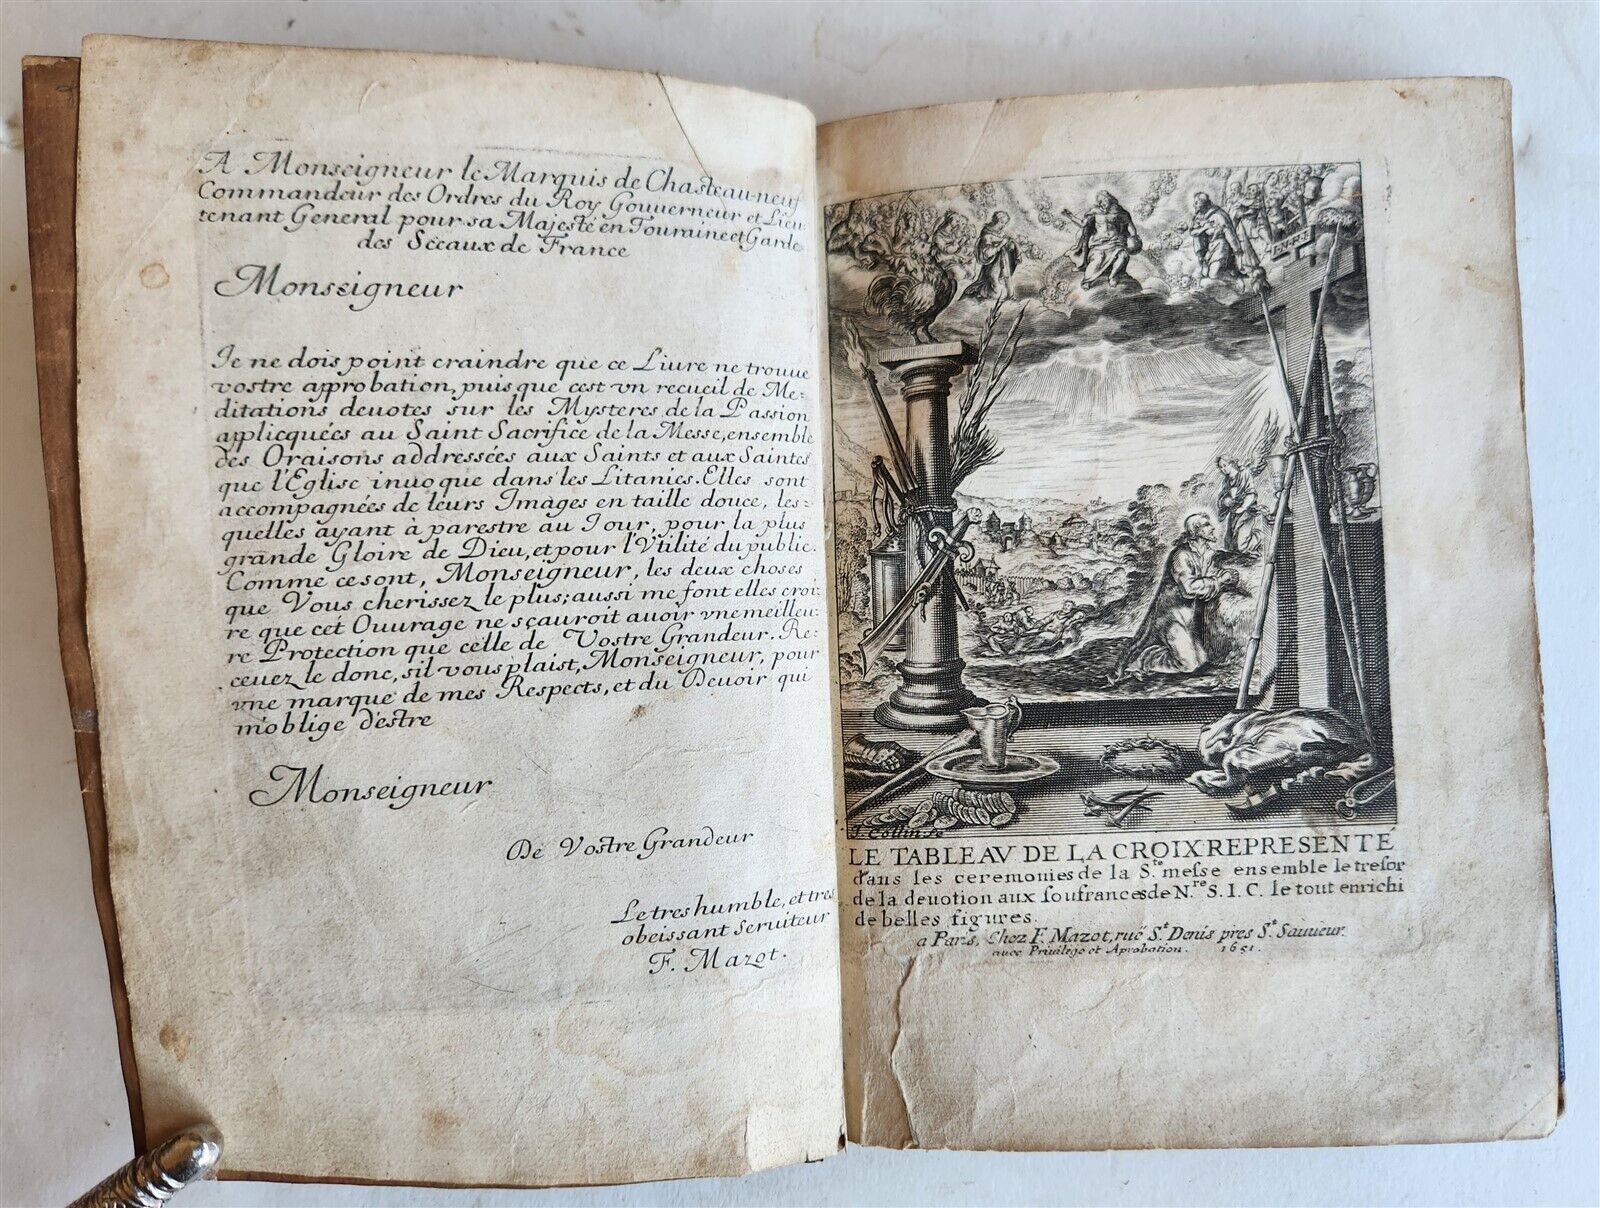 A Monseigneur le Marquis de Chasteau-neuf
Commandeur des Ordres du Roy Gouuerneur et Lieu
tenant General pour sa Majesté en Touraine et Garde
des Sceaux de France
Monseigneur
Je ne dois point craindre que ce Liure ne trouue
vostre approbation, puis que cest vn recueil de Me-
ditations deuotes sur les Mysteres de la Passion
applicquées au Saint Sacrifice de la Messe, ensemble
des Oraisons addressées aux Saints et aux Saintes
que l'Eglise inuoque dans les Litanies. Elles sont
accompagnées de leurs Images en taille douce, les-
quelles ayant à parestre au Jour, pour la plus
grande Gloire de Dieu, et pour l'Vtilité du public.
Comme ce sont, Monseigneur, les deux choses
que Vous cherissez le plus; aussi me font elles croi-
re que cet Ouurage ne sçauroit auoir vne meilleu-
re Protection que celle de Vostre Grandeur. Re-
ceuez le donc, sil vous plaist, Monseigneur, pour
vne marque de mes Respects, et du Deuoir qui
m'oblige d'estre
Monseigneur
De Vostre Grandeur
Le tres humble, et tres
obeissant Seruiteur
F. Mazot.
I·N·R·I
J. Collin. fe
LE TABLEAV DE LA CROIX REPRESENTÉ
dans les ceremonies de la S.te messe ensemble le tresor
de la deuotion aux soufrances de N.re S. I. C. le tout enrichi
de belles figures.
a Paris, Chez F. Mazot, ruë S.t Denis pres S.t Sauueur.
auec Priuilege et Aprobation. 1651.